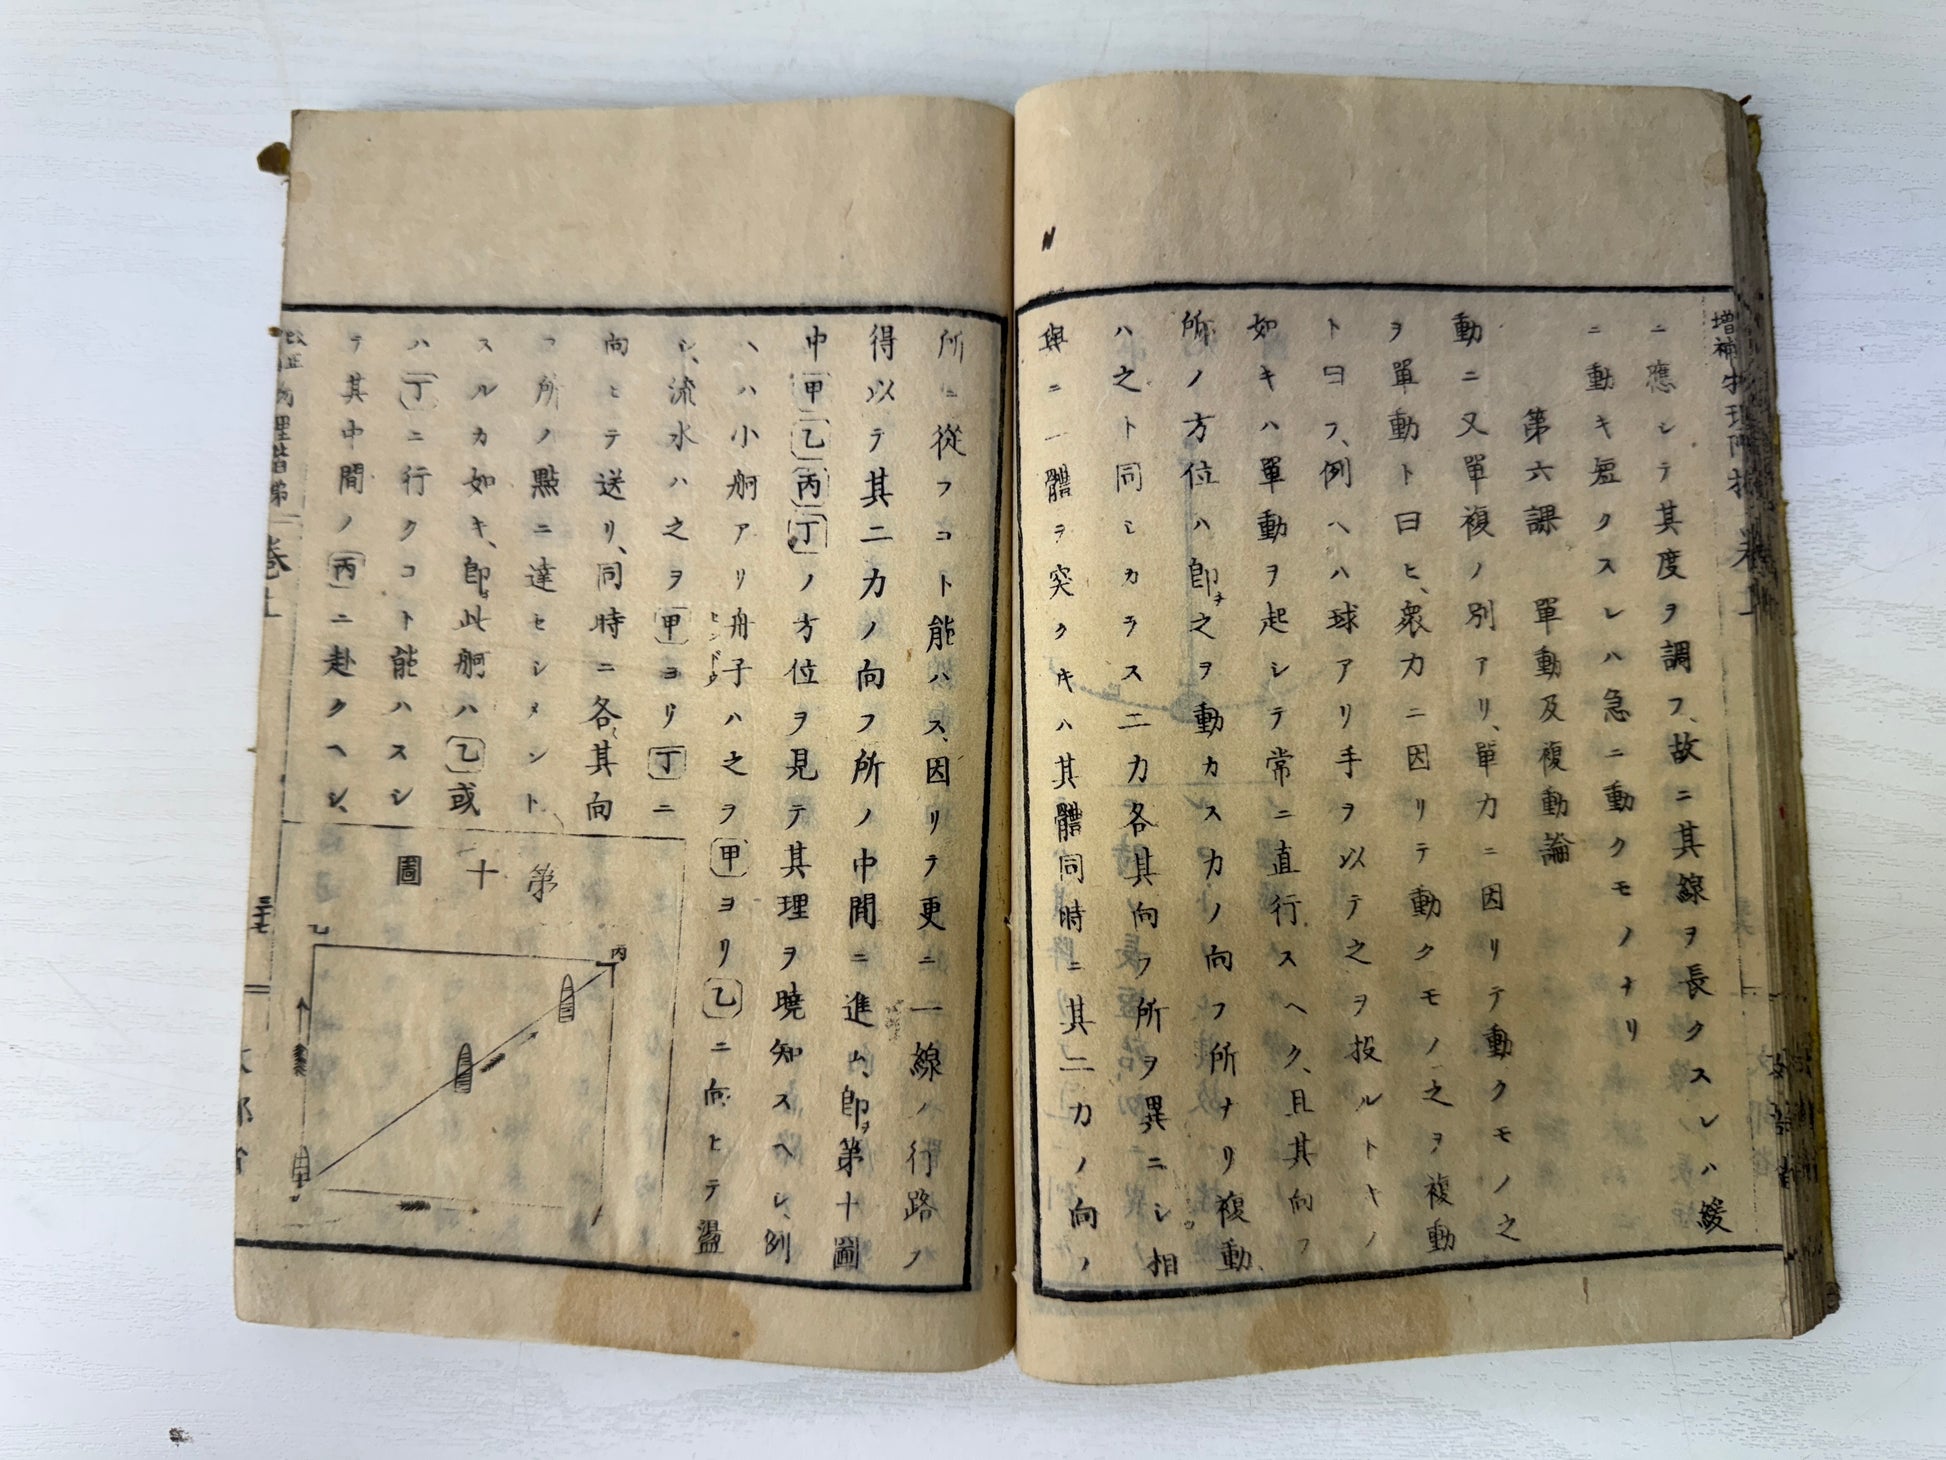 ニ應シテ其度ヲ調フ、故ニ其線ヲ長クスレハ緩
ニ動キ短クスレハ急ニ動クモノナリ
第六課 單動及複動論
動ニ又單複ノ別アリ、單力ニ因リテ動クモノ之
ヲ單動ト曰ヒ、衆力ニ因リテ動クモノ之ヲ複動
ト曰フ、例ヘハ球アリ手ヲ以テ之ヲ投ルトキノ
如キハ單動ヲ起シテ常ニ直行スヘク、且其向フ
所ノ方位ハ卽チ之ヲ動カス力ノ向フ所ナリ複動
ハ之ト同シカラス二力各其向フ所ヲ異ニシ相
與ニ一體ヲ突クキハ其體同時ニ其二力ノ向ノ
所ニ從フコト能ハス、因リテ更ニ一線ノ行路ノ
得以テ其二力ノ向フ所ノ中間ニ進ム、卽チ第十圖
中甲乙丙丁ノ方位ヲ見テ其理ヲ曉知スヘシ、例
ヘハ小舸アリ舟子ハ之ヲ甲ヨリ乙ニ向ヒテ盪
シ、流水ハ之ヲ甲ヨリ丁ニ
向ヒテ送リ、同時ニ各其向
フ所ノ點ニ達セシメント
スルカ如キ、卽チ此舸ハ乙或
ハ丁ニ行クコト能ハスシ
テ其中間ノ丙ニ赴クヘシ、
第十圖
乙
丙
甲
丁
改正
物理階梯
卷上
三十七